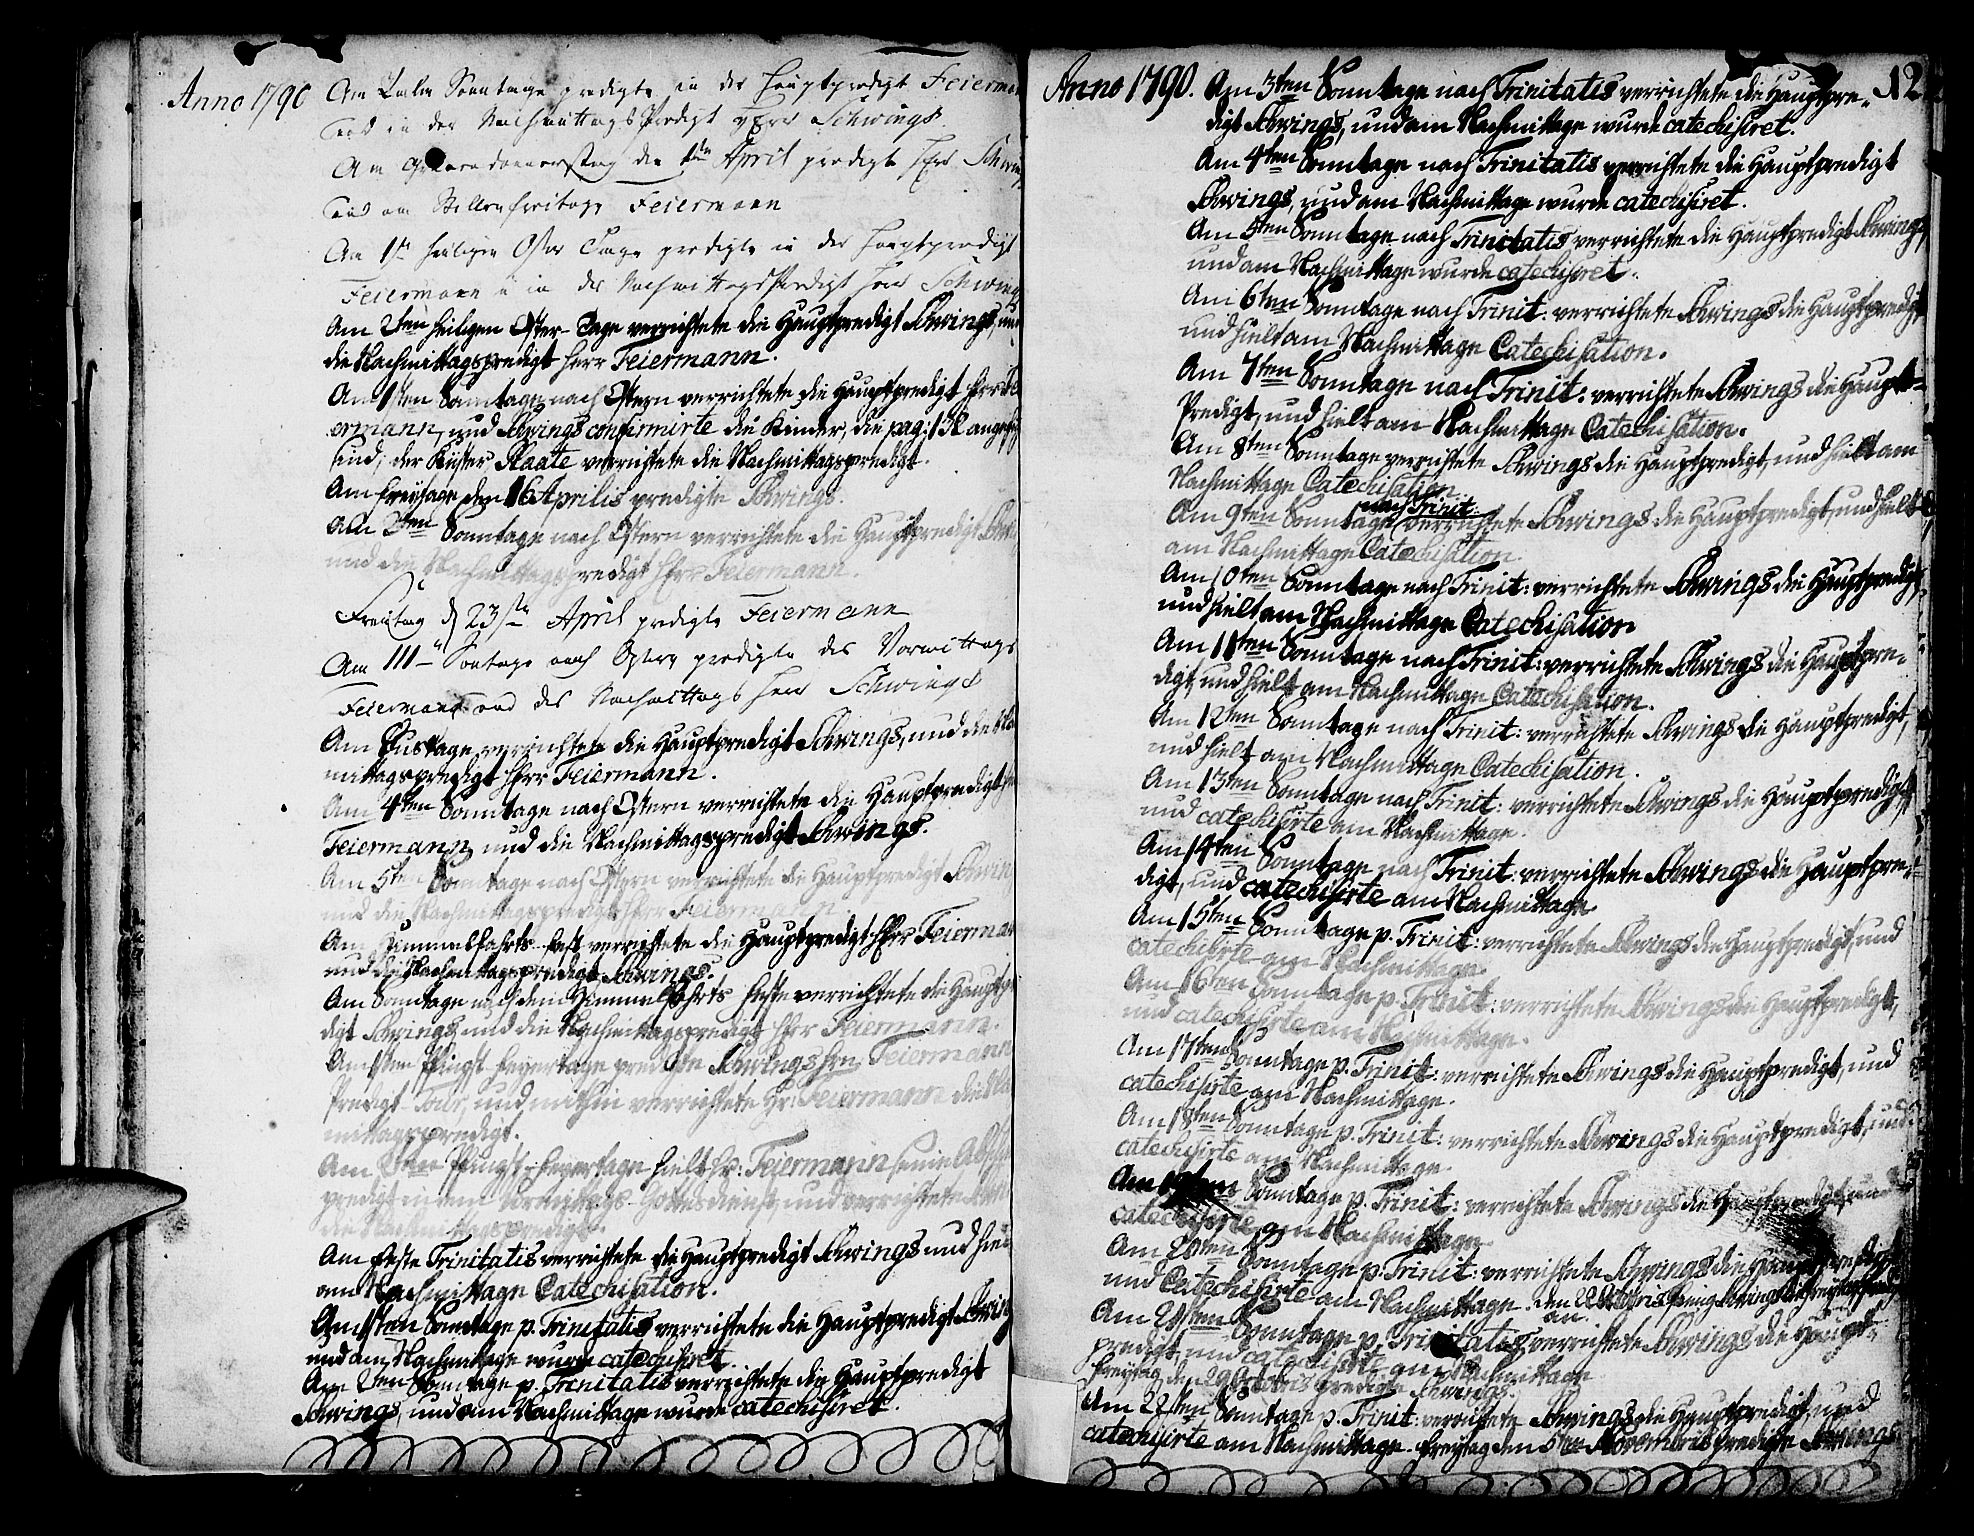 Anno 1790
Am Palm Sonntage predigte in der Hauptpredigt Feierman
und in der Nachmittags Predigt Herr Schwings
Am Grünendonnerstag den 1ten April predigt Herr Schwing
und am Stillenfreitage Feiermann
Am 1ten heiligen Oster Tage predigte in der Hauptpredigt
Feiermann u in der Nachmittags Predigt Herr Schwing
Am 2ten heiligen Oster-Tage verrichtete die Hauptpredigt Schwings, und
die Nachmittagspredigt Herr Feiermann.
Am 1sten Sonntage nach Ostern verrichtete die Hauptpredigt Herr Fei
ermann, und Schwings confirmirte die Kinder, die pag: 132 angef
sind, der Küster Plaate verrichtete die Nachmittagspredigt.
Am Freytage den 16 Aprilis predigte Schwings.
Am 2ten Sonntage nach Ostern verrichtete die Hauptpredigt Schwi
und die Nachmittagspredigt Herr Feiermann.
Freitag d 23ste April predigte Feiermann
Am III Sontage nach Ostern predigte des Vormittags
Feiermann und des Nachmittags Herr Schwings
Am Bustage verrichtete die Hauptpredigt Schwings, und die Nach
mittagspredigt Herr Feiermann.
Am 4ten Sonntage nach Ostern verrichtete die Hauptpredigt Herr
Feiermann, und die Nachmittagspredigt Schwings.
Am 5ten Sonntage nach Ostern verrichtete die Hauptpredigt Schwin
und die Nachmittagspredigt Herr Feiermann.
Am Himmelfahrts-Fest verrichtete die Hauptpredigt Herr Feierman
und die Nachmittagspredigt Schwings.
Am Sonntage nach dem Himmelfahrts Feste verrichtete die Hauptpre
digt Schwings und die Nachmittagspredigt Herr Feiermann.
Am 1sten Pfingst Feyertage predigte Schwings Hrn Feiermann
Predigt-Tour, und mithin verrichtete Hr: Feiermann die Nach
mittagspredigt.
Am 2ten Pfingst-Feyertage hielt Hr: Feiermann seine Abschi
predigt in dem Vormittags-Gottesdienst, und verrichtete Schwi
die Nachmittagspredigt.
Am Feste Trinitatis verrichtete die Hauptpredigt Schwings und hielt
am Nachmittage Catechisation.
Am 1sten Sonntage p. Trinitatis verrichtete die Hauptpredigt Schwing
und am Nachmittage wurde catechisiret.
Am 2ten Sonntage p. Trinitatis verrichtete die Hauptpredigt
Schwings, und am Nachmittage wurde catechisiret.
Anno 1790. 12
Am 3ten Sonntage nach Trinitatis verrichtete die Hauptpre-
digt Schwings, und am Nachmittage wurde catechisiret.
Am 4ten Sonntage nach Trinitatis verrichtete die Hauptpredigt
Schwings, und am Nachmittage wurde catechisiret.
Am 5ten Sonntage nach Trinitatis verrichtete die Hauptpredigt Schwings,
und am Nachmittage wurde catechisiret.
Am 6ten Sonntage nach Trinit. verrichtete Schwings die Hauptpredigt,
und hielt am Nachmittage Catechisation.
Am 7ten Sonntage nach Trinit: verrichtete Schwings die Haupt-
Predigt, und hielt am Nachmittage Catechisation.
Am 8ten Sonntage verrichtete Schwings die Hauptpredigt, und hielt am
Nachmittage Catechisation.
nach Trinit:
Am 9ten Sonntage verrichtete Schwings die Hauptpredigt, und hielt
am Nachmittage Catechisation.
Am 10ten Sonntage nach Trinit: verrichtete Schwings die Hauptpredigt,
und hielt am Nachmittage Catechisation
Am 11ten Sonntage nach Trinit: verrichtete Schwings die Hauptpre-
digt, und hielt am Nachmittage Catechisation.
Am 12ten Sonntage nach Trinit: verrichtete Schwings die Hauptpredigt,
und hielt am Nachmittage Catechisation.
Am 13ten Sonntage nach Trinit: verrichtete Schwings die Hauptpredigt,
und catechisirte am Nachmittage.
Am 14ten Sonntage nach Trinit: verrichtete Schwings die Hauptpre-
digt, und catechisirte am Nachmittage.
Am 15ten Sonntage p. Trinit: verrichtete Schwings die Hauptpredigt, und
catechisirte am Nachmittage.
Am 16ten Sonntage p. Trinit: verrichtete Schwings die Hauptpredigt,
und catechisirte am Nachmittage.
Am 17ten Sonntage p. Trinit: verrichtete Schwings die Hauptpredigt, und
catechisirte am Nachmittage.
Am 18ten Sonntage p. Trinit: verrichtete Schwings die Hauptpredigt, und
catechisirte am Nachmittage.
Am 19ten Sonntage p. Trinit: verrichtete Schwings die Hauptpredigt, und
catechisirte am Nachmittage
Am 20ten Sonntage p. Trinit: verrichtete Schwings die Hauptpredigt
und Catechisirte am Nachmittage. den 22 Octobris fieng Schwings die Freytagspredigt
an.
Am 21sten Sonntage p. Trinitatis verrichtete Schwings die Haupt-
predigt, und catechisirte am Nachmittage
Freytag den 29 Octobris predigte Schwings.
Am 22sten Sonntage p. Trinit: verrichtete Schwings die Hauptpredigt, und
catechisirte am Nachmittage. Freytag den 5ten Novembris predigte Schwings